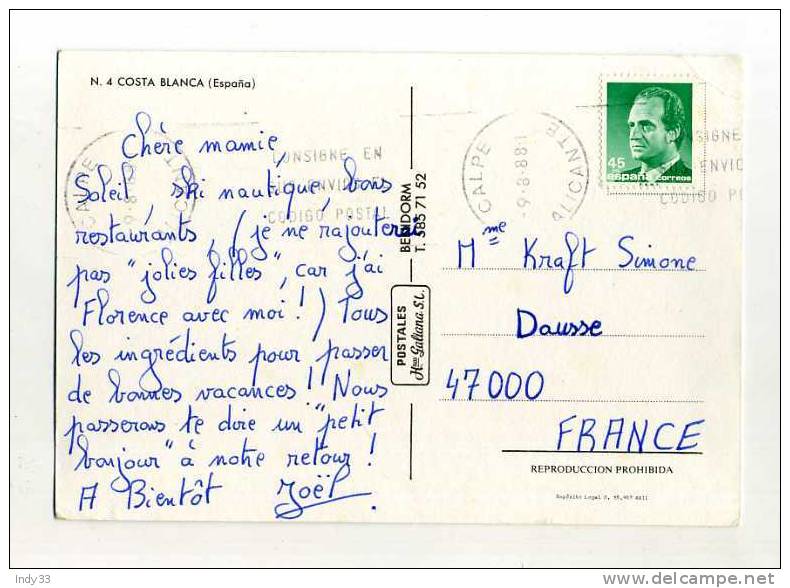 N. 4 COSTA BLANCA (España)
Chère mamie,
Soleil, ski nautique, bons
restaurants, (je ne rajouterai
pas "jolies filles", car j'ai
Florence avec moi !) Tous
les ingrédients pour passer
de bonnes vacances ! Nous
passerons te dire un "petit
bonjour" à notre retour !
A Bientôt Joël
CONSIGNE EN
ENVIO
CODIGO POSTAL
BENIDORM
T. 585 71 52
POSTALES
Hnos Galiana S.L.
CALPE
-9.8.88-1
ALICANTE
45
españa correos
CONSIGNE
ENVIO
CODIGO PO
Mme Kraft Simone
Dausse
47000
FRANCE
REPRODUCCION PROHIBIDA
Depósito Legal
Indy33
www.delcampe.net